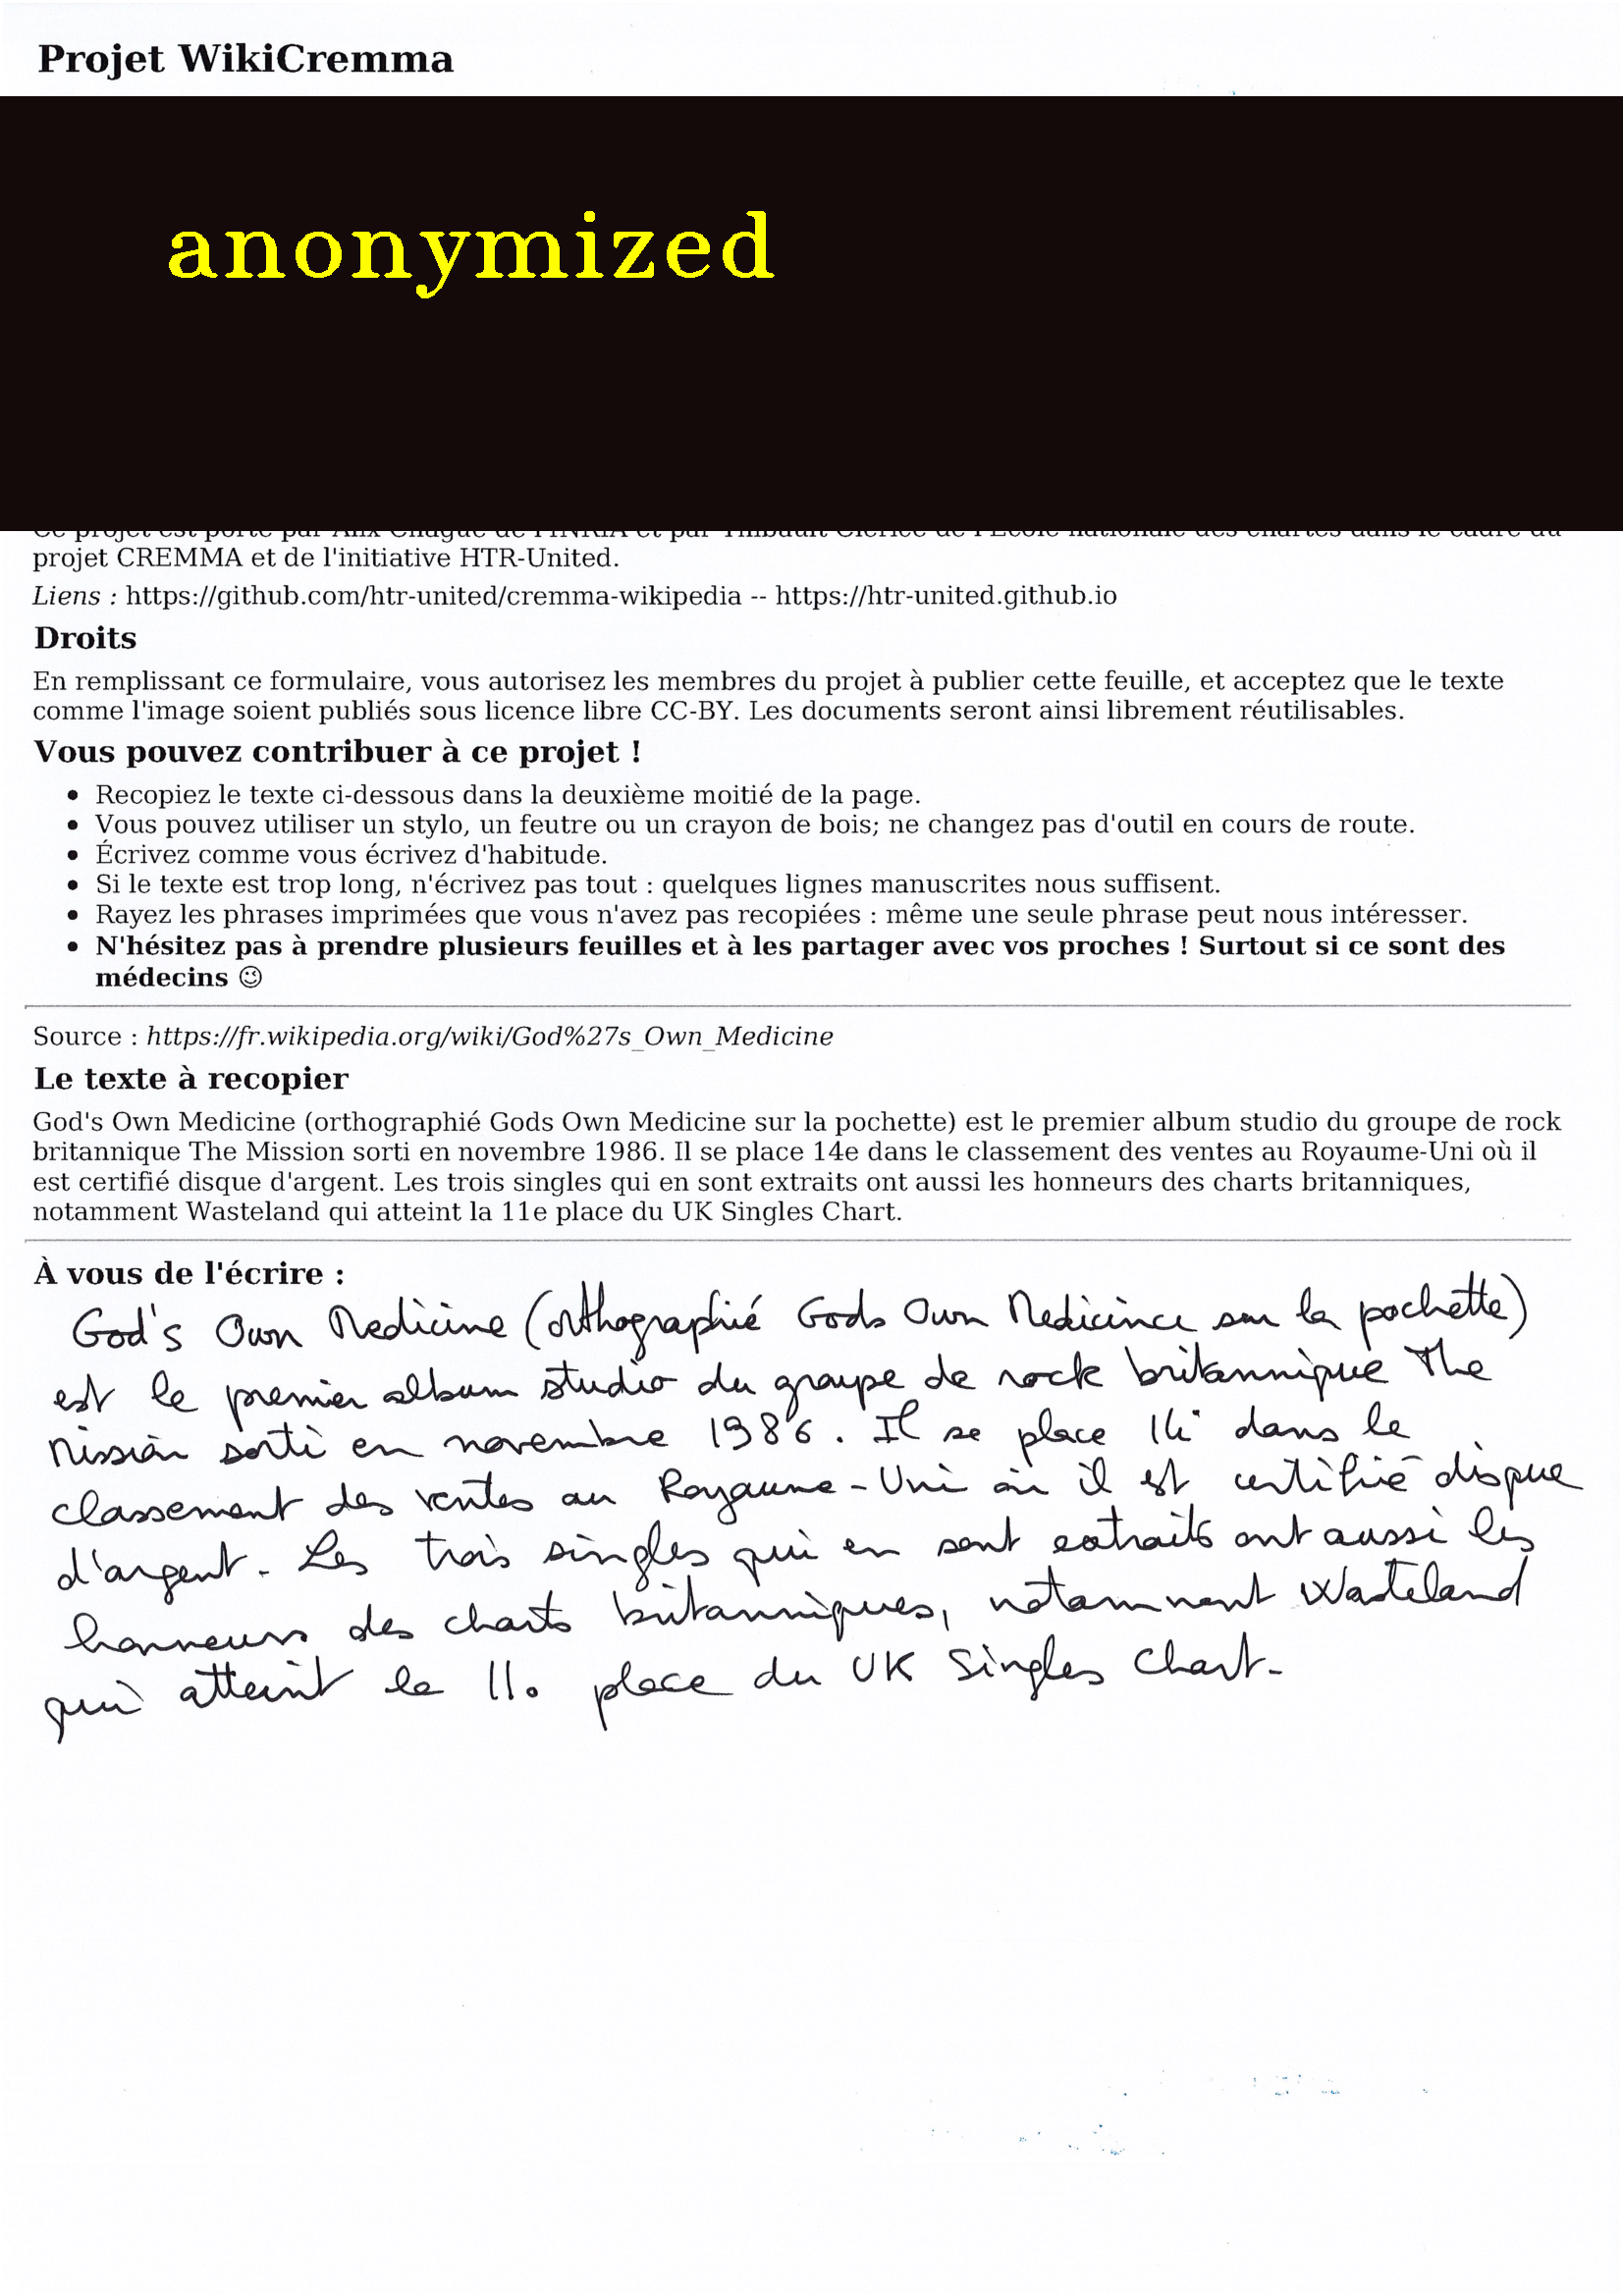 Projet WikiCremma
anonymized
Ce projet est porté par Alix Chagué de l'INRIA et par Thibault Clérice de l'École nationale des chartes dans le cadre du
projet CREMMA et de l'initiative HTR-United.
Liens : https://github.com/htr-united/cremma-wikipedia -- https://htr-united.github.io
Droits
En remplissant ce formulaire, vous autorisez les membres du projet à publier cette feuille, et acceptez que le texte
comme l'image soient publiés sous licence libre CC-BY. Les documents seront ainsi librement réutilisables.
Vous pouvez contribuer à ce projet !
• Recopiez le texte ci-dessous dans la deuxième moitié de la page.
• Vous pouvez utiliser un stylo, un feutre ou un crayon de bois; ne changez pas d'outil en cours de route.
• Écrivez comme vous écrivez d'habitude.
• Si le texte est trop long, n'écrivez pas tout : quelques lignes manuscrites nous suffisent.
• Rayez les phrases imprimées que vous n'avez pas recopiées : même une seule phrase peut nous intéresser.
• N'hésitez pas à prendre plusieurs feuilles et à les partager avec vos proches ! Surtout si ce sont des
médecins 😉
Source : https://fr.wikipedia.org/wiki/God%27s_Own_Medicine
Le texte à recopier
God's Own Medicine (orthographié Gods Own Medicine sur la pochette) est le premier album studio du groupe de rock
britannique The Mission sorti en novembre 1986. Il se place 14e dans le classement des ventes au Royaume-Uni où il
est certifié disque d'argent. Les trois singles qui en sont extraits ont aussi les honneurs des charts britanniques,
notamment Wasteland qui atteint la 11e place du UK Singles Chart.
À vous de l'écrire :
God's Own Medicine (orthographié Gods Own Medicince sur la pochette)
est le premier album studio du groupe de rock britannique The
Mission sorti en novembre 1986. Il se place 14° dans le
classement des ventes au Royaume-Uni où il est certifié disque
d'argent. Les trois singles qui en sont extraits ont aussi les
honneurs des charts britanniques, notamment Wasteland
qui atteint la 11e place du UK Singles Chart.